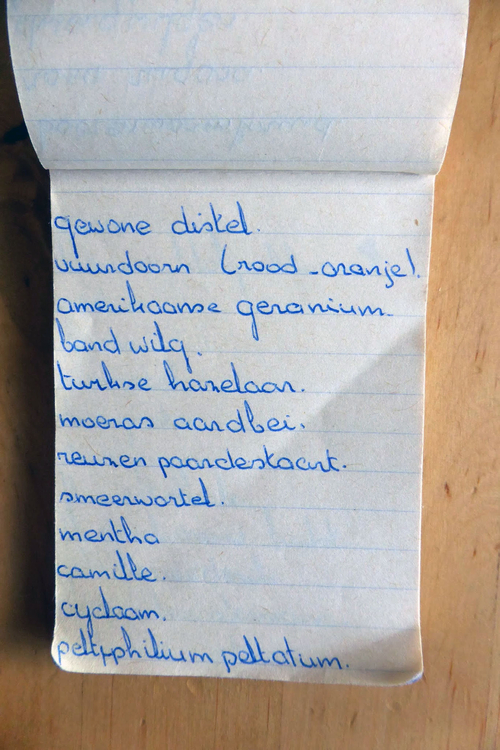 gewone distel.
vuurdoorn (rood - oranje).
amerikaanse geranium.
band wilg.
turkse hazelaar.
moeras aardbei.
reuzen paardestaart.
smeerwortel.
mentha
camille.
cyclaam.
peltyphilium peltatum.